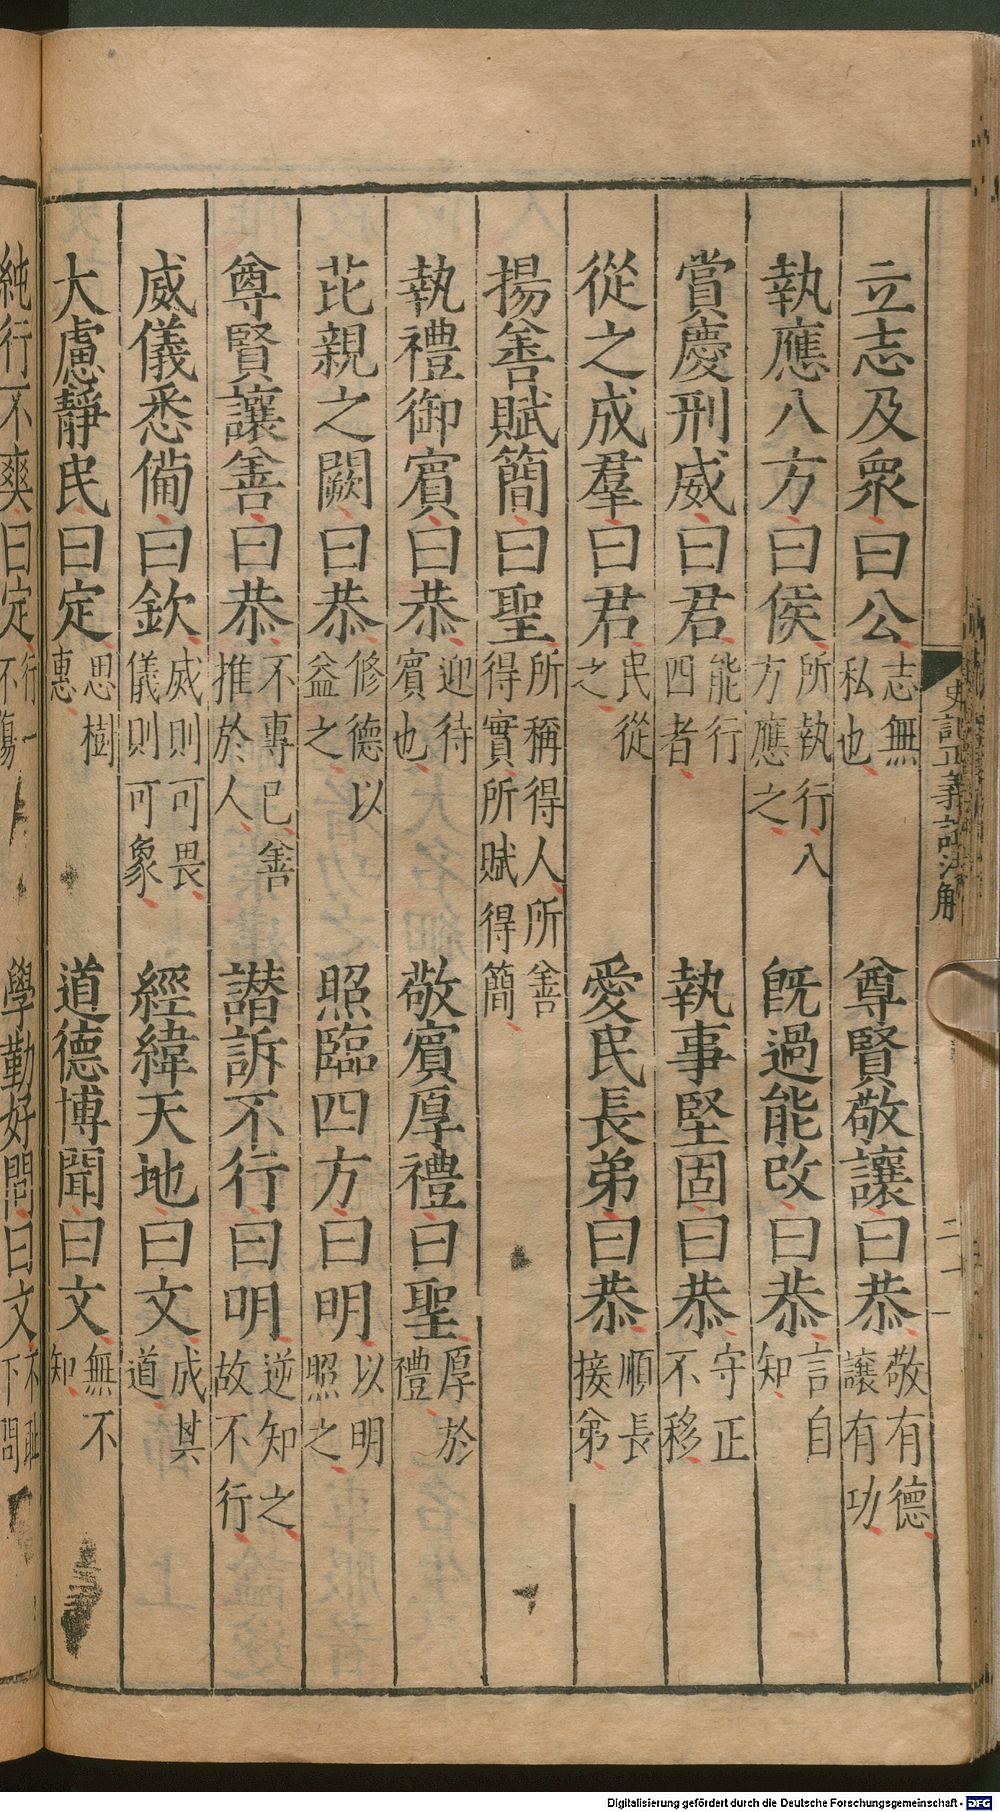 史記正義諡法解
二
立志及衆曰公志無私也尊賢敬讓曰恭敬有德讓有功
執應八方曰侯所執行八方應之旣過能改曰恭言自知
賞慶刑威曰君能行四者執事堅固曰恭守正不移
從之成羣曰君民從之愛民長弟曰恭順長接弟
揚善賦簡曰聖所稱得人所善得實所賦得簡
執禮御賓曰恭迎待賓也敬賓厚禮曰聖厚於禮
芘親之闕曰恭修德以益之照臨四方曰明以明照之
尊賢讓善曰恭不專己善推於人譖訴不行曰明逆知之故不行
威儀悉備曰欽威則可畏儀則可象經緯天地曰文成其道
大慮靜民曰定思樹惠道德博聞曰文無不知
純行不爽曰定行一不傷學勤好問曰文不恥下問
Digitalisierung gefördert durch die Deutsche Forschungsgemeinschaft - DFG